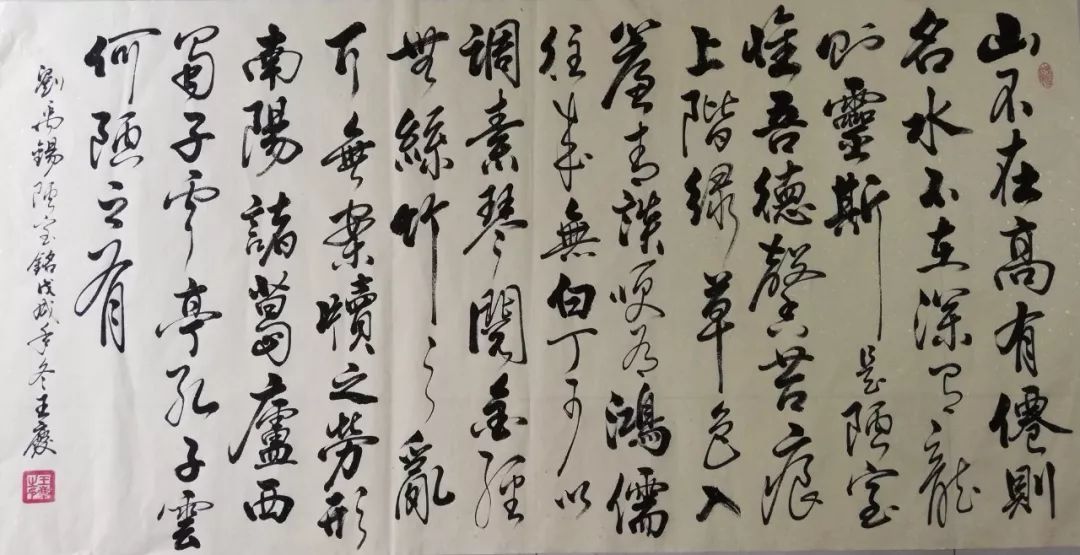 山不在高有僊則
名水不在深有龍
則靈斯是陋室
惟吾德馨苔痕
上階綠草色入
簾青談笑有鴻儒
往來無白丁可以
調素琴閱金經
無絲竹之亂
耳無案牘之勞形
南陽諸葛廬西
蜀子雲亭孔子雲
何陋之有
劉禹錫陋室銘戊戌年冬王慶